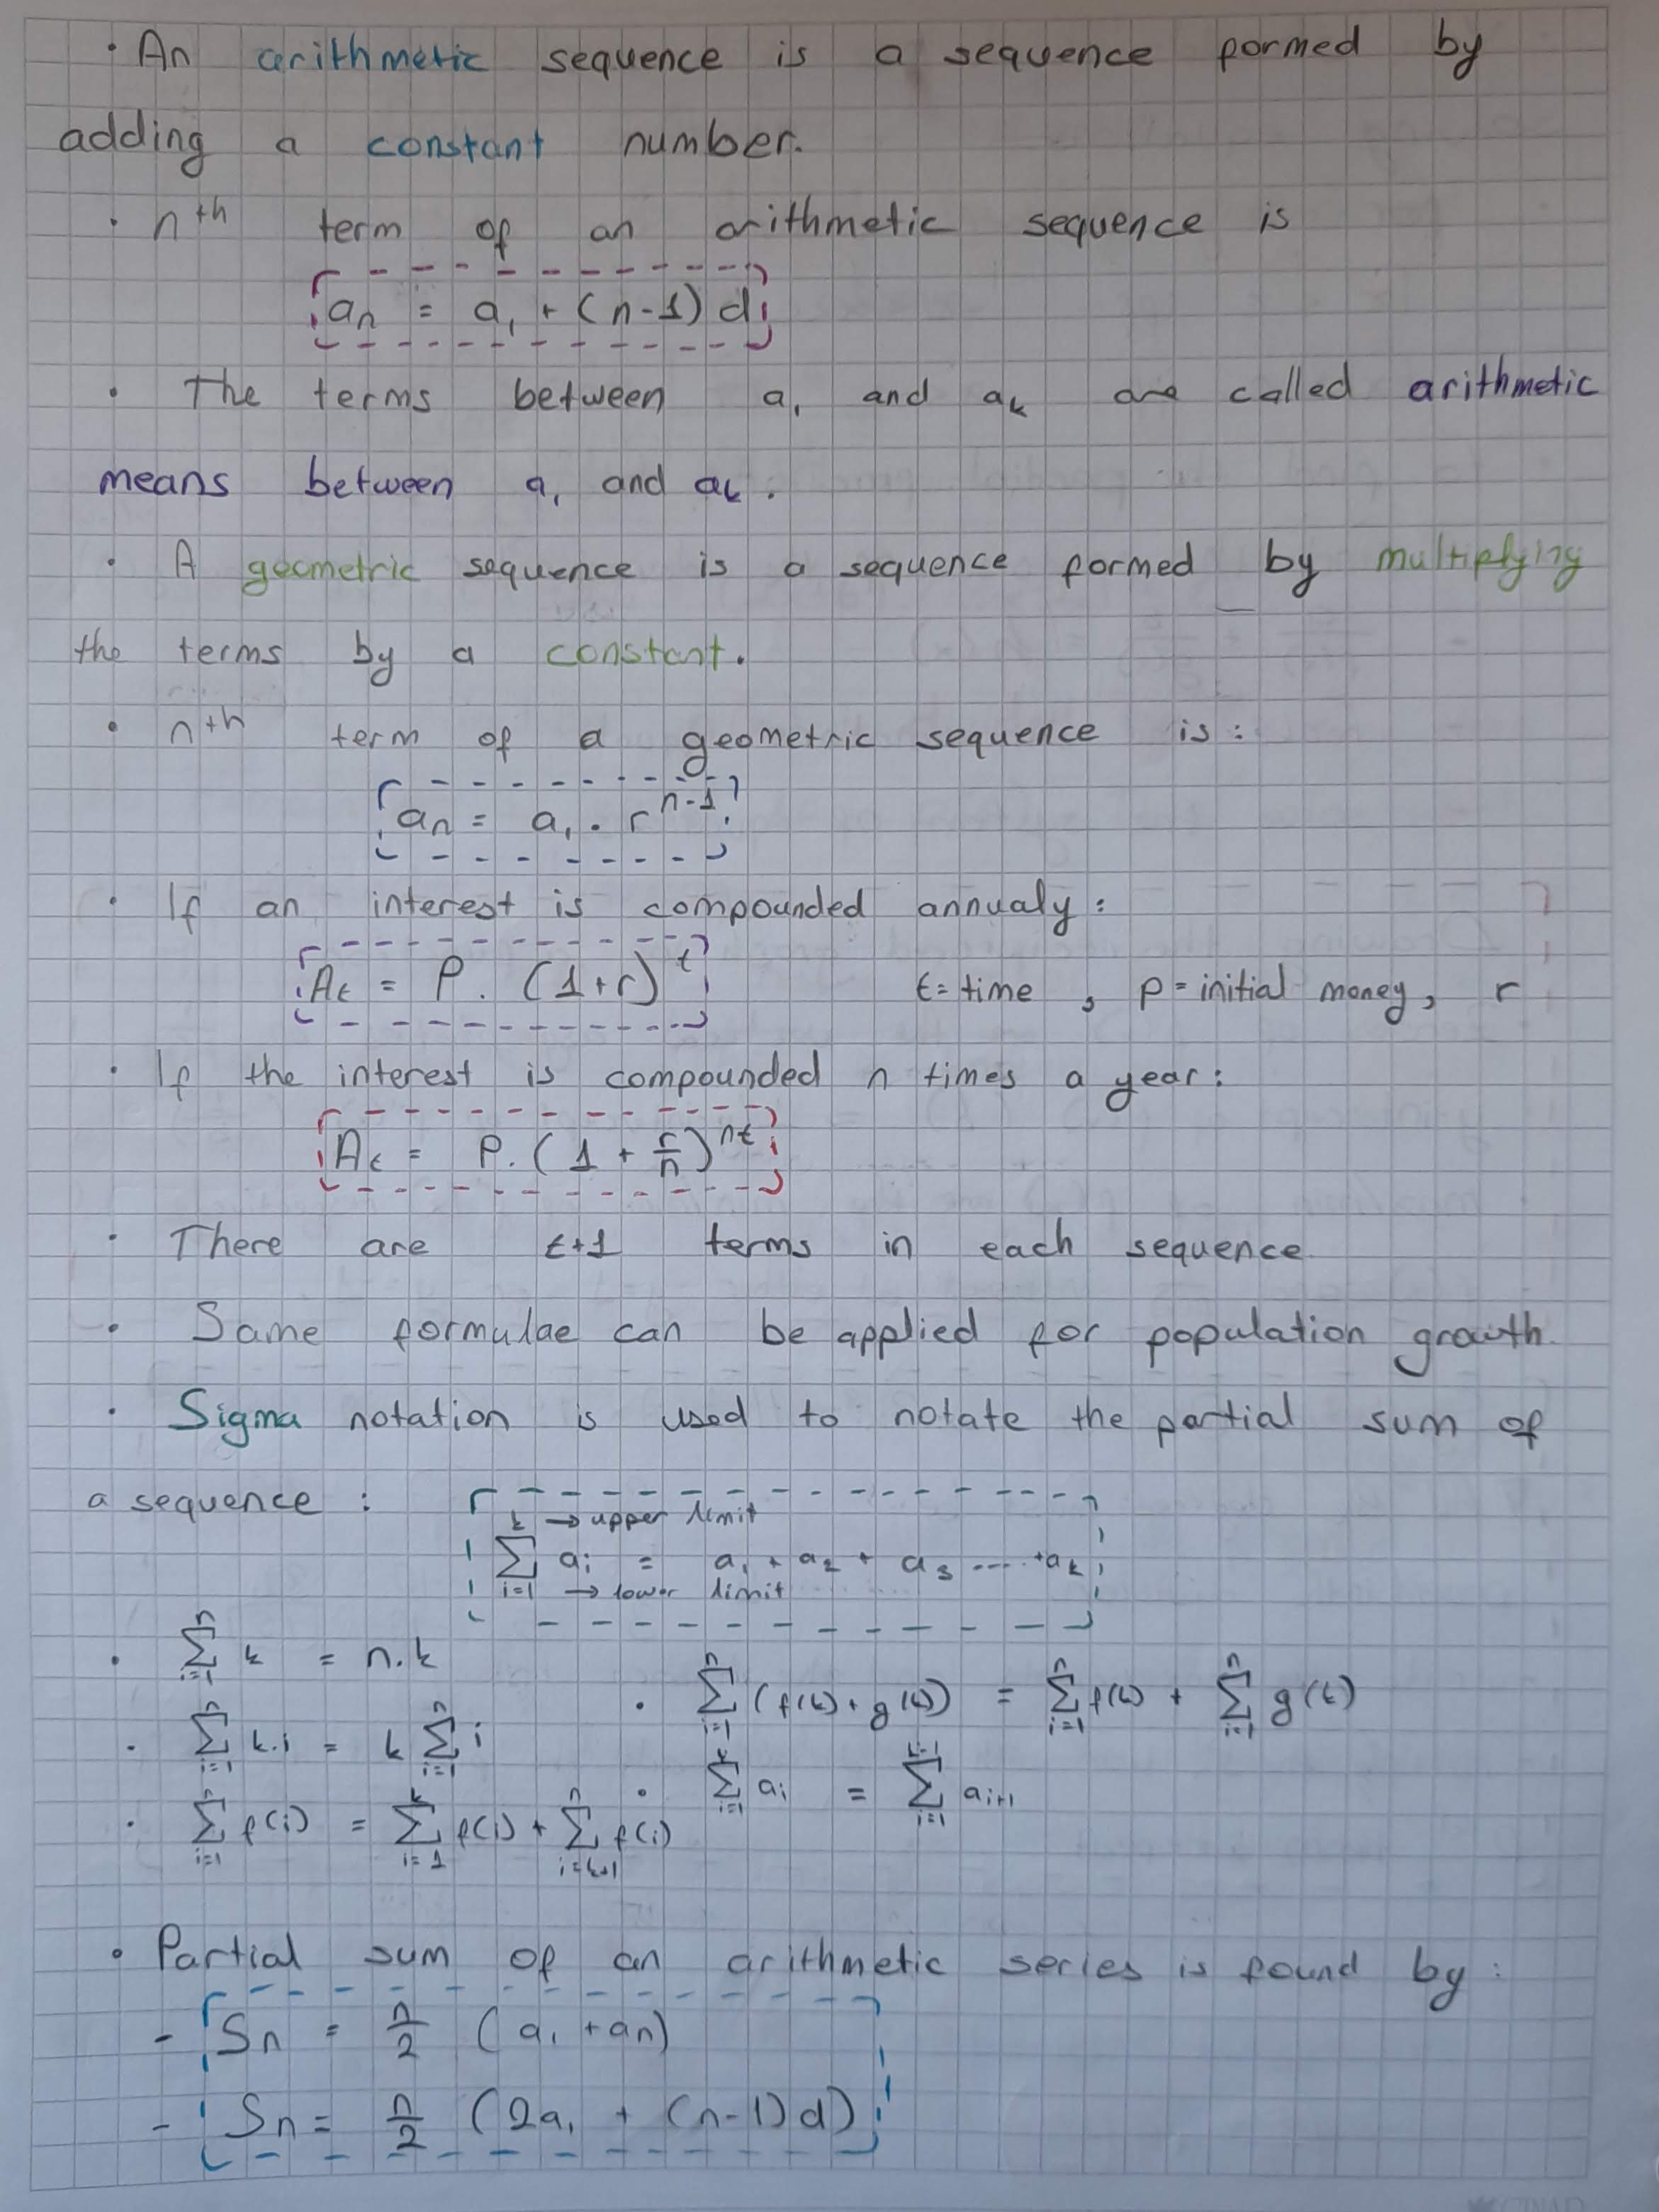 • An arithmetic sequence is a sequence formed by
adding a constant number.
• nᵗʰ term of an arithmetic sequence is
aₙ = a₁ + (n-1) d
• The terms between a₁ and aₖ are called arithmetic
means between a₁ and aₖ.
• A geometric sequence is a sequence formed by multiplying
the terms by a constant.
• nᵗʰ term of a geometric sequence is:
aₙ = a₁ . rⁿ⁻¹
• If an interest is compounded annualy:
Aₜ = P. (1+r)ᵗ t = time , p = initial money, r
• If the interest is compounded n times a year:
Aₜ = P. (1 + r/n)ⁿᵗ
• There are t+1 terms in each sequence.
• Same formulae can be applied for population growth.
• Sigma notation is used to notate the partial sum of
a sequence :
k → upper limit
∑ aᵢ = a₁ + a₂ + a₃ .... +aₖ
i=1 → lower limit
• ∑ᵢ₌₁ⁿ k = n.k
• ∑ᵢ₌₁ⁿ (f(k) + g(k)) = ∑ᵢ₌₁ⁿ f(k) + ∑ᵢ₌₁ⁿ g(k)
• ∑ᵢ₌₁ⁿ k.i = k ∑ᵢ₌₁ⁿ i
• ∑ᵢ₌₁ᵏ aᵢ = ∑ᵢ₌₁ᵏ⁻¹ aᵢ₊₁
• ∑ᵢ₌₁ⁿ f(i) = ∑ᵢ₌₁ᵏ f(i) + ∑ᵢ₌ₖ₊₁ⁿ f(i)
• Partial sum of an arithmetic series is found by :
- Sₙ = n/2 (a₁ + aₙ)
- Sₙ = n/2 (2a₁ + (n-1)d)